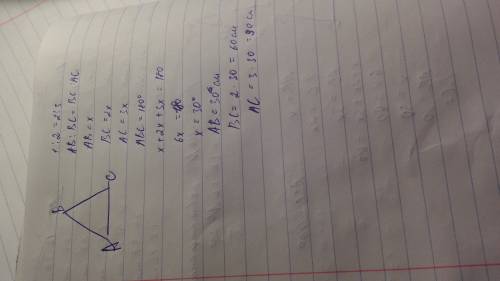 1:2 = 2:3
AB:BC = BC:AC
AB = x
BC = 2x
AC = 3x
ABC = 180°
x + 2x + 3x = 180
6x = 180
x = 30°
AB = 30 см
BC = 2·30 = 60 см
AC = 3·30 = 90 см
B
A
C